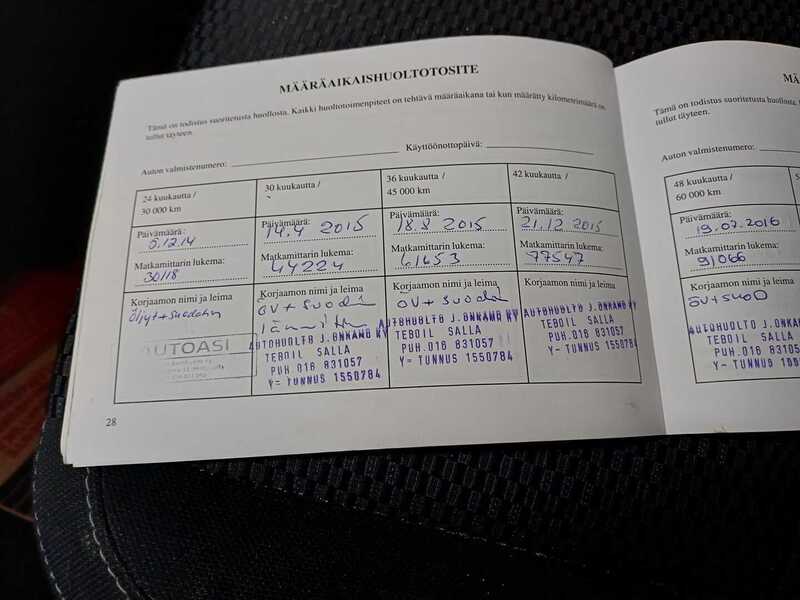 MÄÄRÄAIKAISHUOLTOTOSITE
Tämä on todistus suoritetusta huollosta. Kaikki huoltotoimenpiteet on tehtävä määräaikana tai kun määrätty kilometrimäärä on
tullut täyteen.
Auton valmistenumero:
Käyttöönottopäivä:
24 kuukautta /
30 000 km
Päivämäärä:
5.12.14
Matkamittarin lukema:
30118
Korjaamon nimi ja leima
Öljyt+suodatin
AUTOASI
30 kuukautta /
Päivämäärä:
14.4 2015
Matkamittarin lukema:
44224
Korjaamon nimi ja leima
ÖV+suoda
AUTOHUOLTO J.ONKAMO KY
TEBOIL SALLA
PUH.016 831057
Y= TUNNUS 1550784
36 kuukautta /
45 000 km
Päivämäärä:
18.8 2015
Matkamittarin lukema:
61653
Korjaamon nimi ja leima
ÖV+suoda
AUTOHUOLTO J.ONKAMO KY
TEBOIL SALLA
PUH.016 831057
Y= TUNNUS 1550784
42 kuukautta /
Päivämäärä:
21.12 2015
Matkamittarin lukema:
77547
Korjaamon nimi ja leima
AUTOHUOLTO J.ONKAMO KY
TEBOIL SALLA
PUH.016 831057
Y- TUNNUS 1550784
28
MÄ
Tämä on todistus suoritetusta huollosta.
tullut täyteen.
Auton valmistenumero:
48 kuukautta /
60 000 km
Päivämäärä:
19.07.2016
Matkamittarin lukema:
91066
Korjaamon nimi ja leima
ÖV+SUOD
AUTOHUOLTO J.ONKA
TEBOIL SALLA
PUH.016 831057
Y- TUNNUS